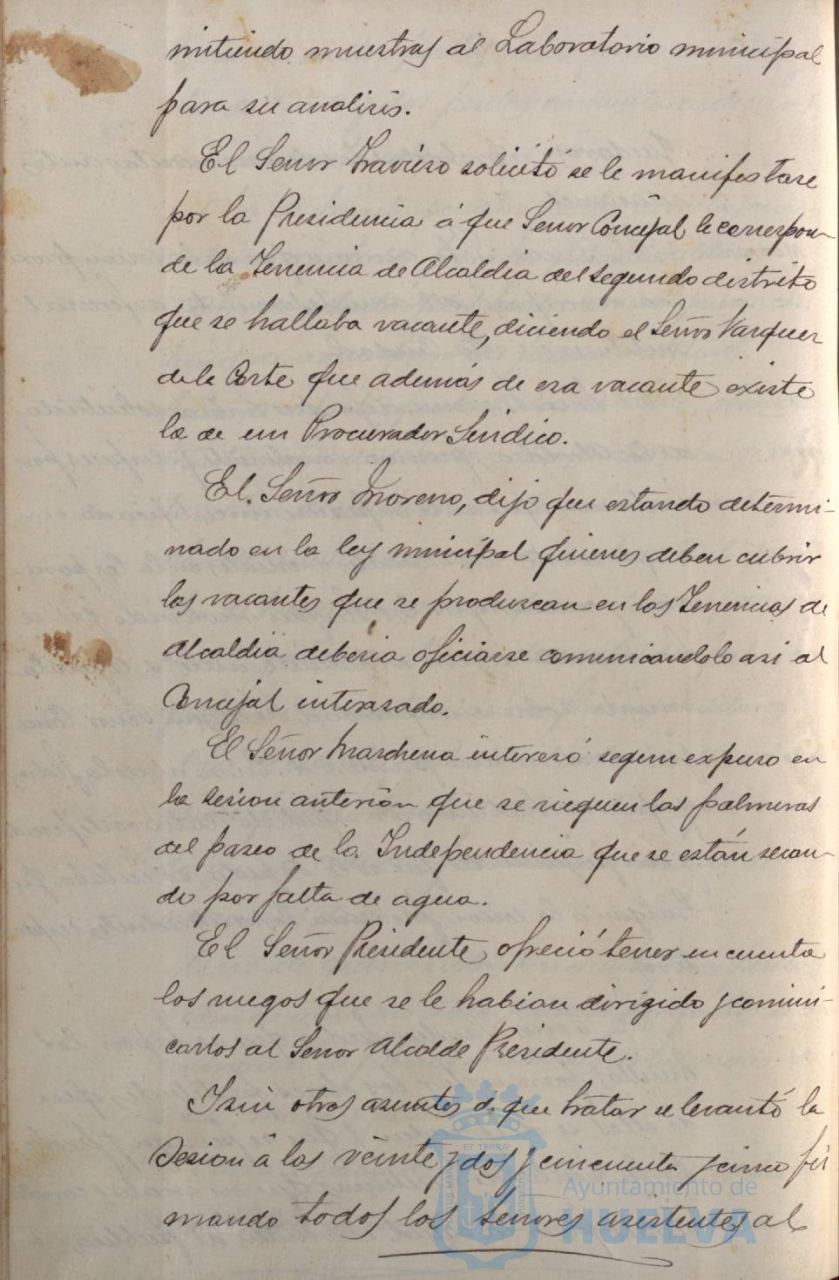 mitiendo muestras al Laboratorio municipal
para su analisis.
El Señor Travieso solicitó se le manifestase
por la Presidencia á que Señor Concejal le correspon-
de la Tenencia de Alcaldia del segundo distrito
que se hallaba vacante, diciendo el Señor Vazquez
de la Corte que además de esa vacante existe
la de un Procurador Sindico.
El Señor Moreno, dijo que estando determi-
nado en la ley municipal quienes deben cubrir
las vacantes que se produzcan en las Tenencias de
Alcaldia deberia oficiarse comunicandolo asi al
Concejal interesado.
El Señor Marchena interesó segun expuso en
la sesion anterior que se rieguen las palmeras
del paseo de la Independencia que se están secan-
do por falta de agua.
El Señor Presidente ofreció tener en cuenta
los ruegos que se le habian dirigido y comuni-
carlos al Señor Alcalde Presidente.
I sin otros asuntos de que tratar se levantó la
Sesion á las veinte y dos y cincuenta y cinco fir
mando todos los Señores asistentes al
Ayuntamiento de
HUELVA